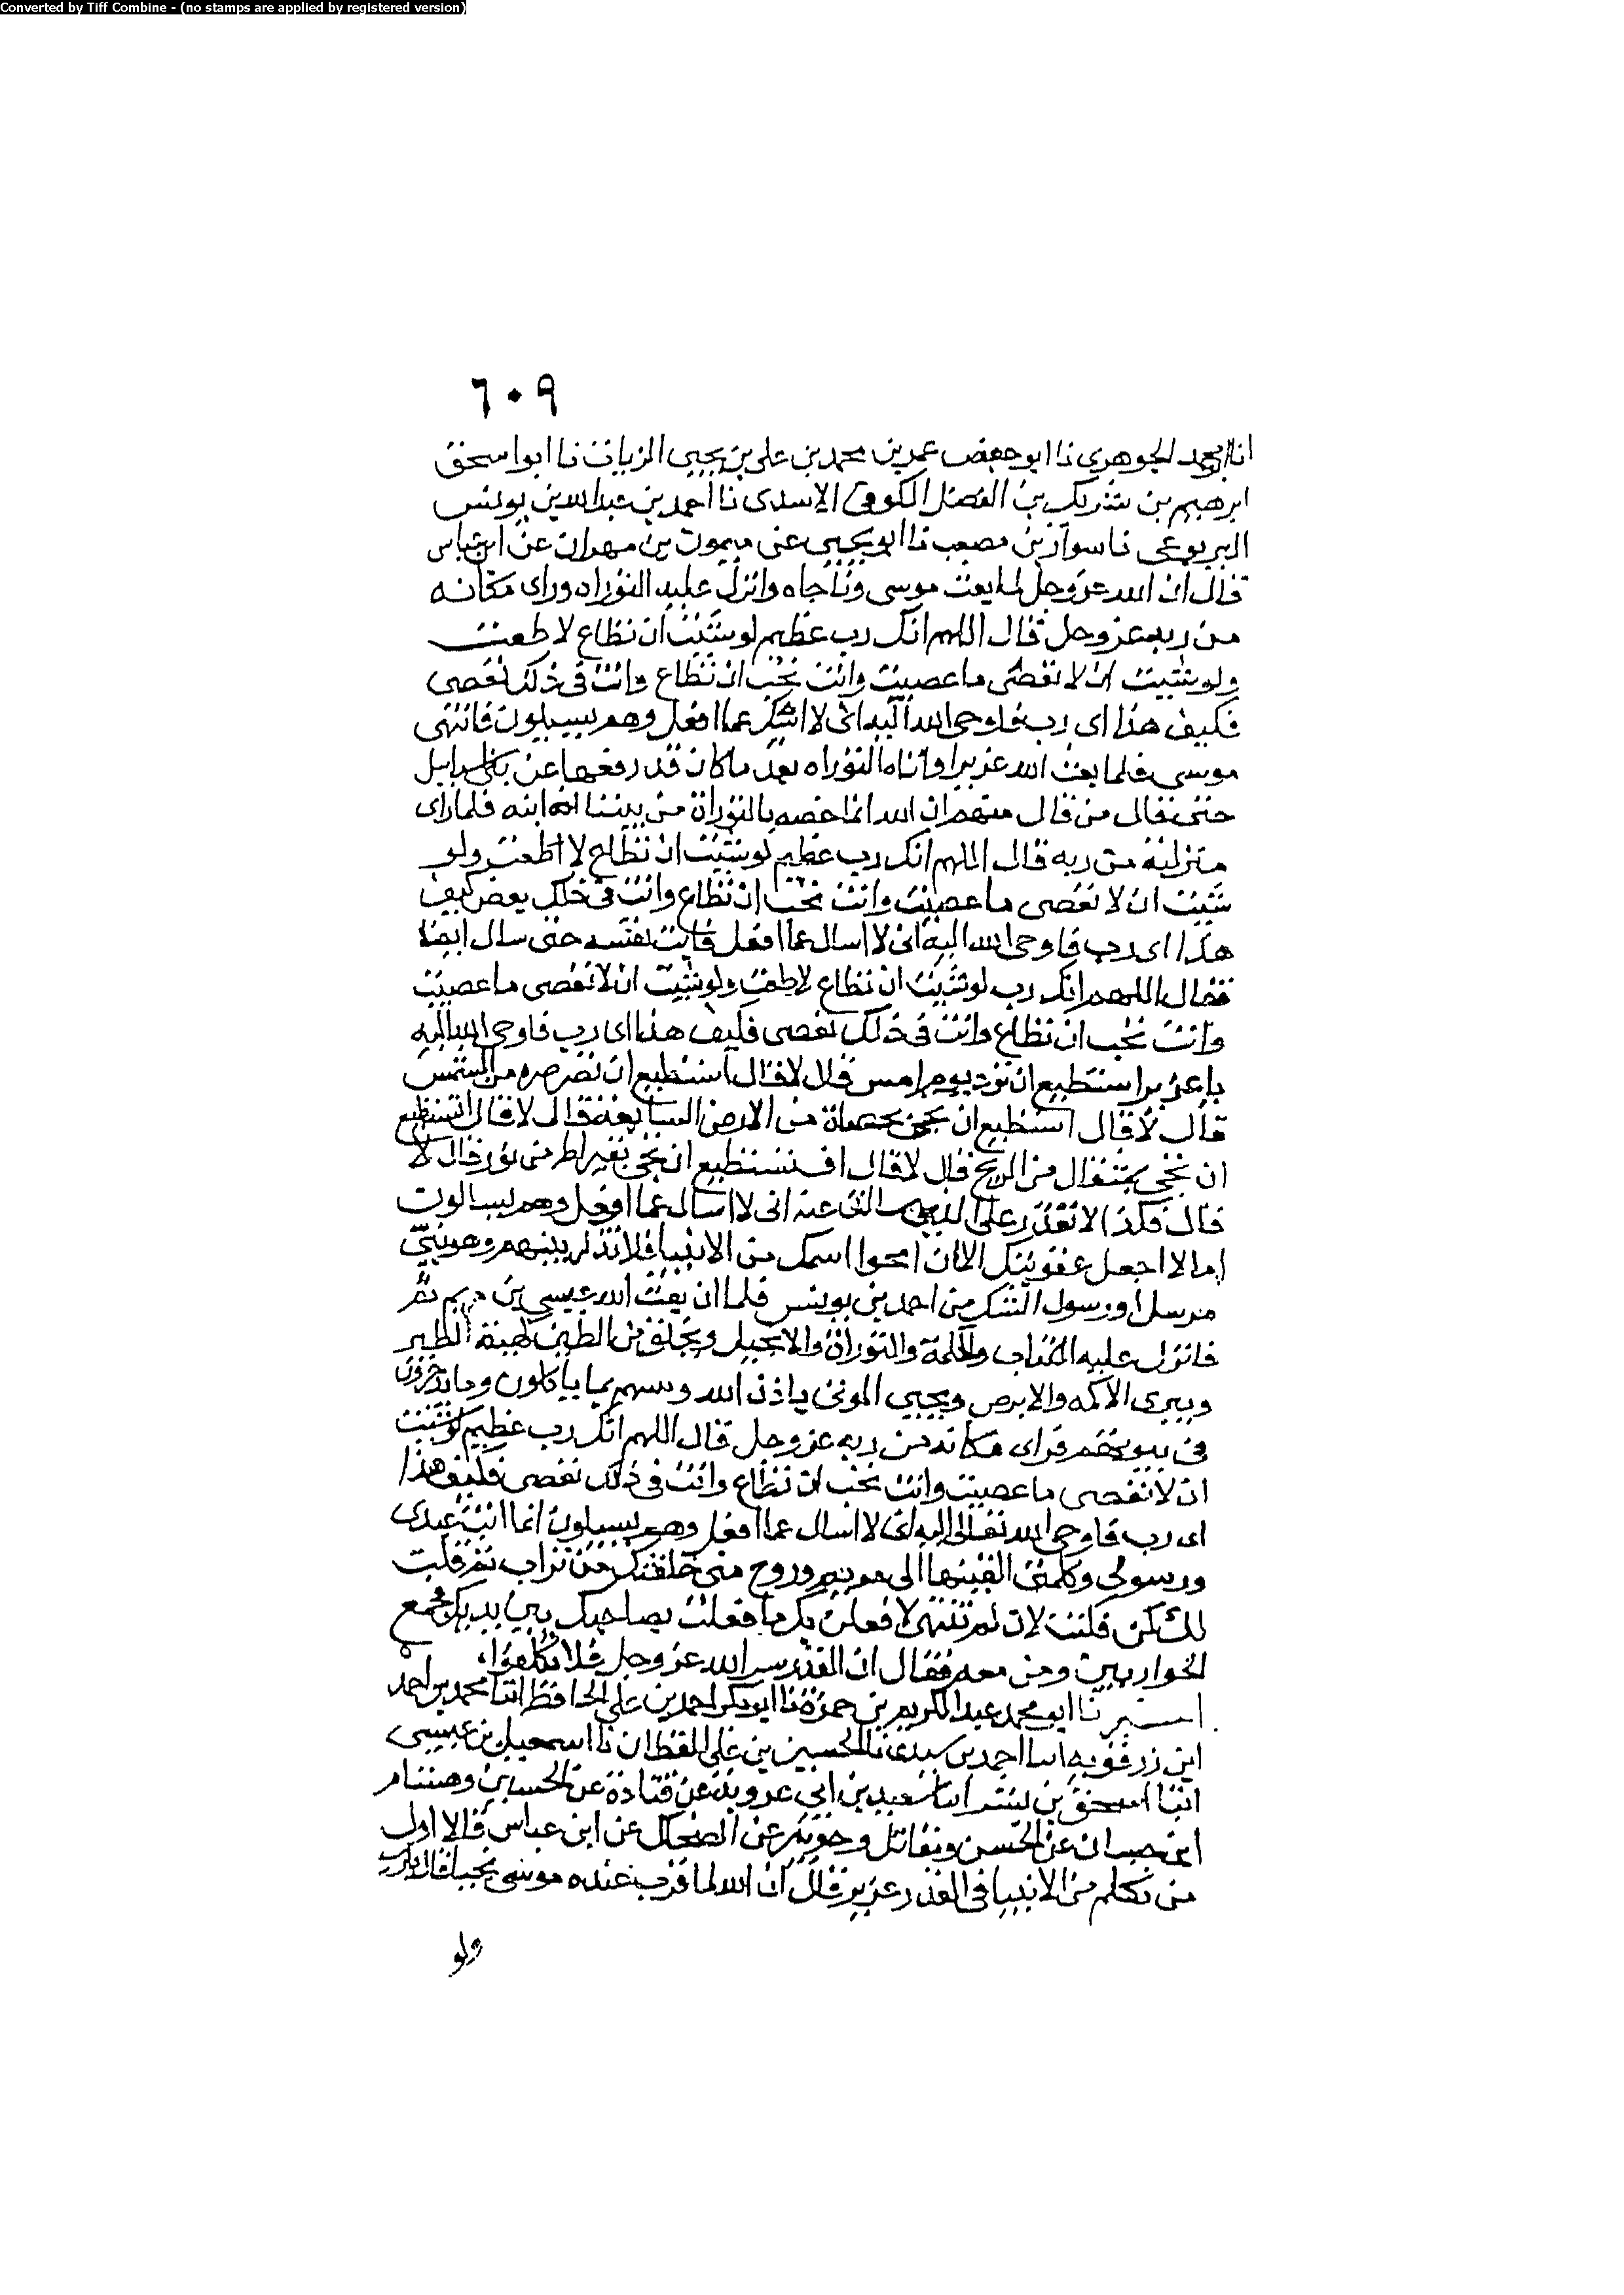 Converted by Tiff Combine - (no stamps are applied by registered version)
٦٠٩
انا ابو محمد الجوهرى نا ابو حفص عمر بن محمد بن على بن يحيى الزيات نا ابو اسحق
ابرهيم بن شريك بن الفضل الكوفى الاسدى نا احمد بن عبد الله بن يونس
اليربوعى نا سوار بن مصعب نا ابو يحيى عن ميمون بن مهران عن ابن عباس
قال ان الله عز وجل لما بعث موسى وناجاه وانزل عليه التوراه وراى مكانه
من ربه عز وجل قال اللهم انك رب عظيم لو شئت ان تطاع لاطعت
ولو شئت ان لا تعصى ما عصيت وانت تحب ان تطاع وانت فى ذلك تعصى
فكيف هذا اى رب فاوحى الله اليه انى لا اسال عما افعل وهم يسيلون فانتهى
موسى فلما بعث الله عزيرا واتاه التوراه بعد ما كان قد رفعها عن بنى اسرايل
حتى قال من قال منهم ان الله انما خصه بالتوراة من بيننا انه ابنه فلما راى
منزلته من ربه قال اللهم انك رب عظيم لو شئت ان تطاع لاطعت ولو
شئت ان لا تعصى ما عصيت وانت تحب ان تطاع وانت فى ذلك يعص كيف
هذا اى رب فاوحى الله اليه انى لا اسال عما افعل فابت نفسه حتى سال ايضا
فقال اللهم انك رب لو شئت ان تطاع لاطعت ولو شئت ان لا تعصى ما عصيت
وانت تحب ان تطاع وانت فى ذلك تعصى فكيف هذا اى رب فاوحى الله اليه
يا عزير استطيع ان ترد يوم امس قال لا قال استطيع ان تصر صره من الشمس
قال لا قال استطيع ان تجى بحصاة من الارض السابعة قال لا قال اتستطيع
ان تجى بمثقال من الريح قال لا قال افتستطيع ان تجى بقيراط من نور قال لا
قال فكذا لا تقدر على الذى سالتنى عنه انى لا اسال عما افعل وهم يسالون
اما لا اجعل عقوبتك الا ان امحوا اسمك من الانبيا فلا تذكر بينهم وهو نبى
مرسل او رسول الشك من احمد بن يونس فلما ان بعث الله عيسى بن مريم
فانزل عليه الكتاب والحكمة والتوراة والانجيل ويخلق من الطين كهيئة الطير
ويبرى الاكمه والابرص ويحيى الموتى باذن الله وينبيهم بما ياكلون وما يدخرون
فى بيوتهم فراى مكانه من ربه عز وجل قال اللهم انك رب عظيم لو شئت
ان لا تعصى ما عصيت وانت تحب ان تطاع وانت فى ذلك تعصى فكيف هذا
اى رب فاوحى الله تعالى اليه انى لا اسال عما افعل وهم يسيلون انما انت عبدى
ورسولى وكلمتى القيتها الى مريم وروح منى خلقتك من تراب ثم قلت
لك كن فكنت لان لم تنتهى لافعلن بك ما فعلت بصاحبك بين يديك فجمع
الحواريين ومن معه فقال ان القدر سر الله عز وجل فلا تكلفوا
نا ابو محمد عبد الكريم بن حمزة نا ابو بكر احمد بن على الحافظ انبا محمد بن احمد
ابن زرقويه انبا احمد بن سندى نا الحسين بن على القطان نا اسمعيل بن عيسى
انبا اسحق بن بشر انبا سعيد بن ابى عروبة عن قتادة عن الحسن وهشام
ابن حسان عن الحسن ومقاتل وجويبر عن الضحاك عن ابن عباس قالا اول
من تكلم من الانبيا فى القدر عزير قال ان الله لما قرب عنده موسى نجيا قال يا رب
ولو